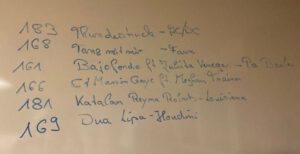 183 Thunderstruck - AC/DC
168 Tanz mit mir - Faun
161 Bajofondo ft Julieta Venegas - Pa
166 Marvin Gaye ft Meghan Trainor
181 Katalan Reyna Louisiana
169 Dua Lipa - Houdini